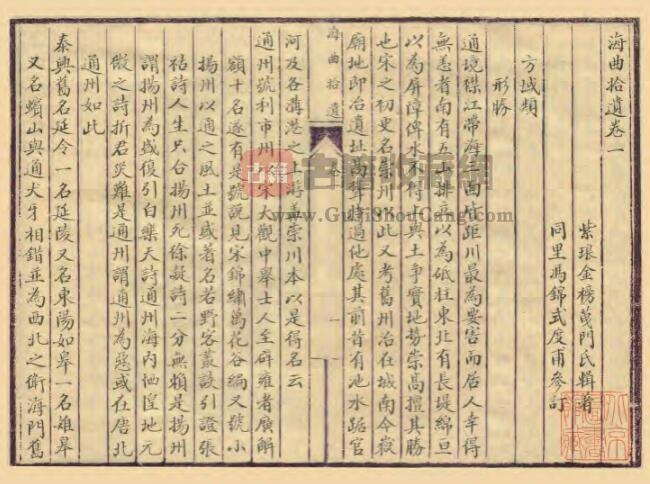 海曲拾遺卷一
紫琅金榜茂門氏輯著
同里馮錦式度甫參訂
方域類
形勝
通境襟江帶海三面皆距川最為要害而居人幸得
無恙者南有五山排立以為砥柱東北有長堤綿亘
以為屏障俾水不得與土爭實地勢崇高擅其勝
也宋之初更名崇州此又考舊州治在城南今嶽
廟地即治遺址高聳特過他處其前昔有池水踞官
海曲拾遺
卷一
一
河及各溝港之上游蓋崇川本以是得名云
通州號利市州宋大觀中舉士人至辟雍者廣解
額十名遂有是號說見宋錦繡萬花谷編又號小
揚州以通之風土並盛著名若野客叢談引證張
祜詩人生只合揚州死徐凝詩二分無賴是揚州
謂揚州為盛復引白樂天詩通州海內恓惶地元
微之詩折君災難是通州謂通州為惡或在唐北
通州如此
泰興舊名延令一名延陵又名東陽如皋一名雉皋
又名蠙山與通犬牙相錯並為西北之衛海門舊
古籍收藏网
www.GuJiShouCang.com